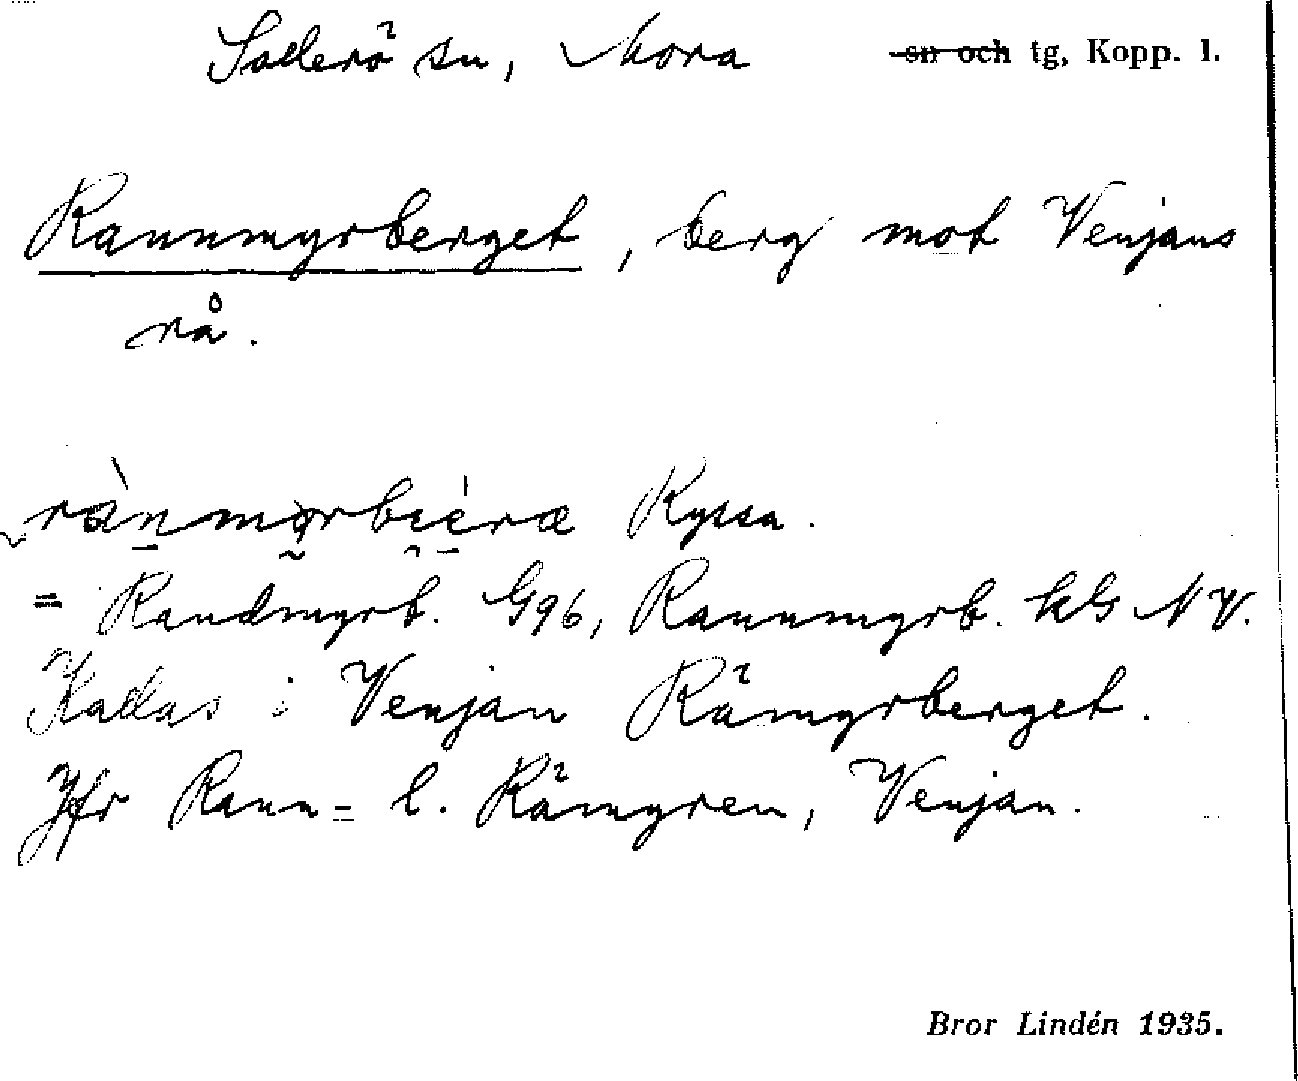 Sollerö sn, Mora sn och tg, Kopp. l.
Rannmyrberget, berg mot Venjans
rå.
Ryssa.
= Randmyrb. G96, Rannmyrb. kG NV.
Kallas i Venjan Råmyrberget.
Jfr Rann- l. Råmyren, Venjan.
Bror Lindén 1935.